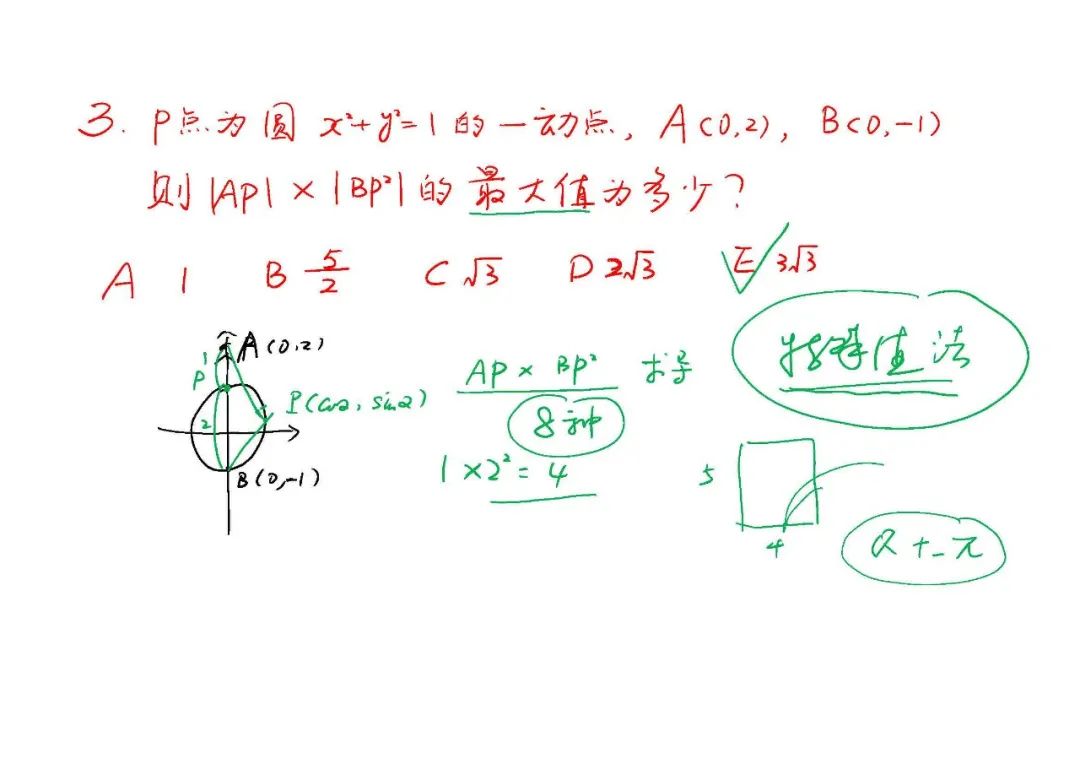 3. P点为圆 x²+y²=1 的一动点, A(0,2), B(0,-1)
则 |AP| × |BP²| 的最大值为多少?
A 1 B 5/2 C √3 D 2√3 E 3√3
A(0,2)
1
P
P(cosα, sinα)
2
B(0,-1)
AP × BP² 求导
8种
1×2²=4
特殊值法
5
4